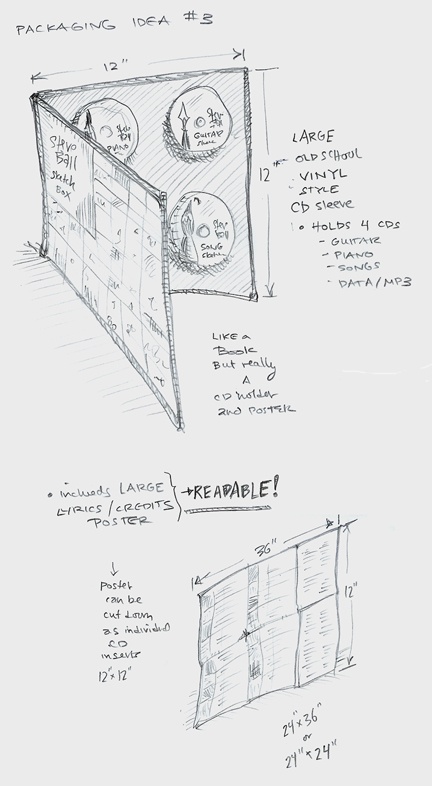 PACKAGING IDEA #3
12"
Steve
Ball
sketch
Box
PIANO
GUITAR
SONG
12"
LARGE
OLD SCHOOL
VINYL
STYLE
CD sleeve
• HOLDS 4 CDs
- GUITAR
- PIANO
- SONGS
- DATA/MP3
LIKE a
Book
But really
A
CD holder
and POSTER
• includs LARGE
LYRICS/CREDITS
POSTER
→READABLE!
↓
poster
can be
cut down
as individual
CD
inserts
12"x12"
36"
12"
24"x36"
or
24"x24"